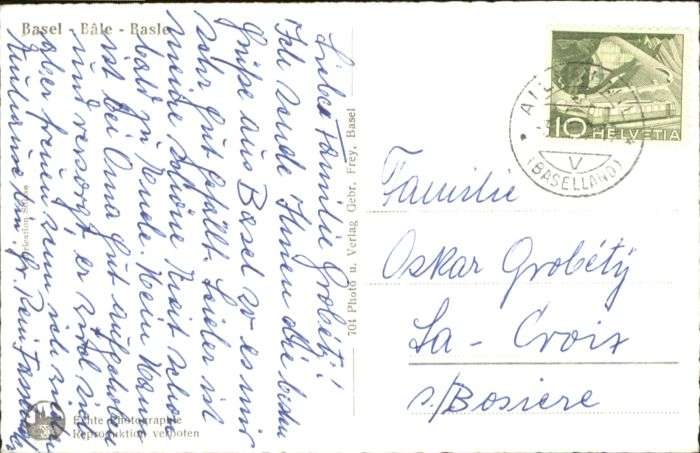 Basel - Bâle - Basle
Liebe Familie Grobétÿ!
Ich sende Ihnen die besten
Grüße aus Basel wo es mir
sehr gut gefällt. Leider ist
meine schöne Zeit schon
bald zu Ende. Mein Mann
ist bei Oma gut aufgehoben
und versorgt, er wird sich
aber freuen wenn ich wieder
704 Photo u. Verlag Gebr. Frey, Basel
Echte Photographie
Reproduktion verboten
10 HELVETIA
(BASELLAND)
V
Familie
Oskar Grobétÿ
La - Croix
s/Bosiere